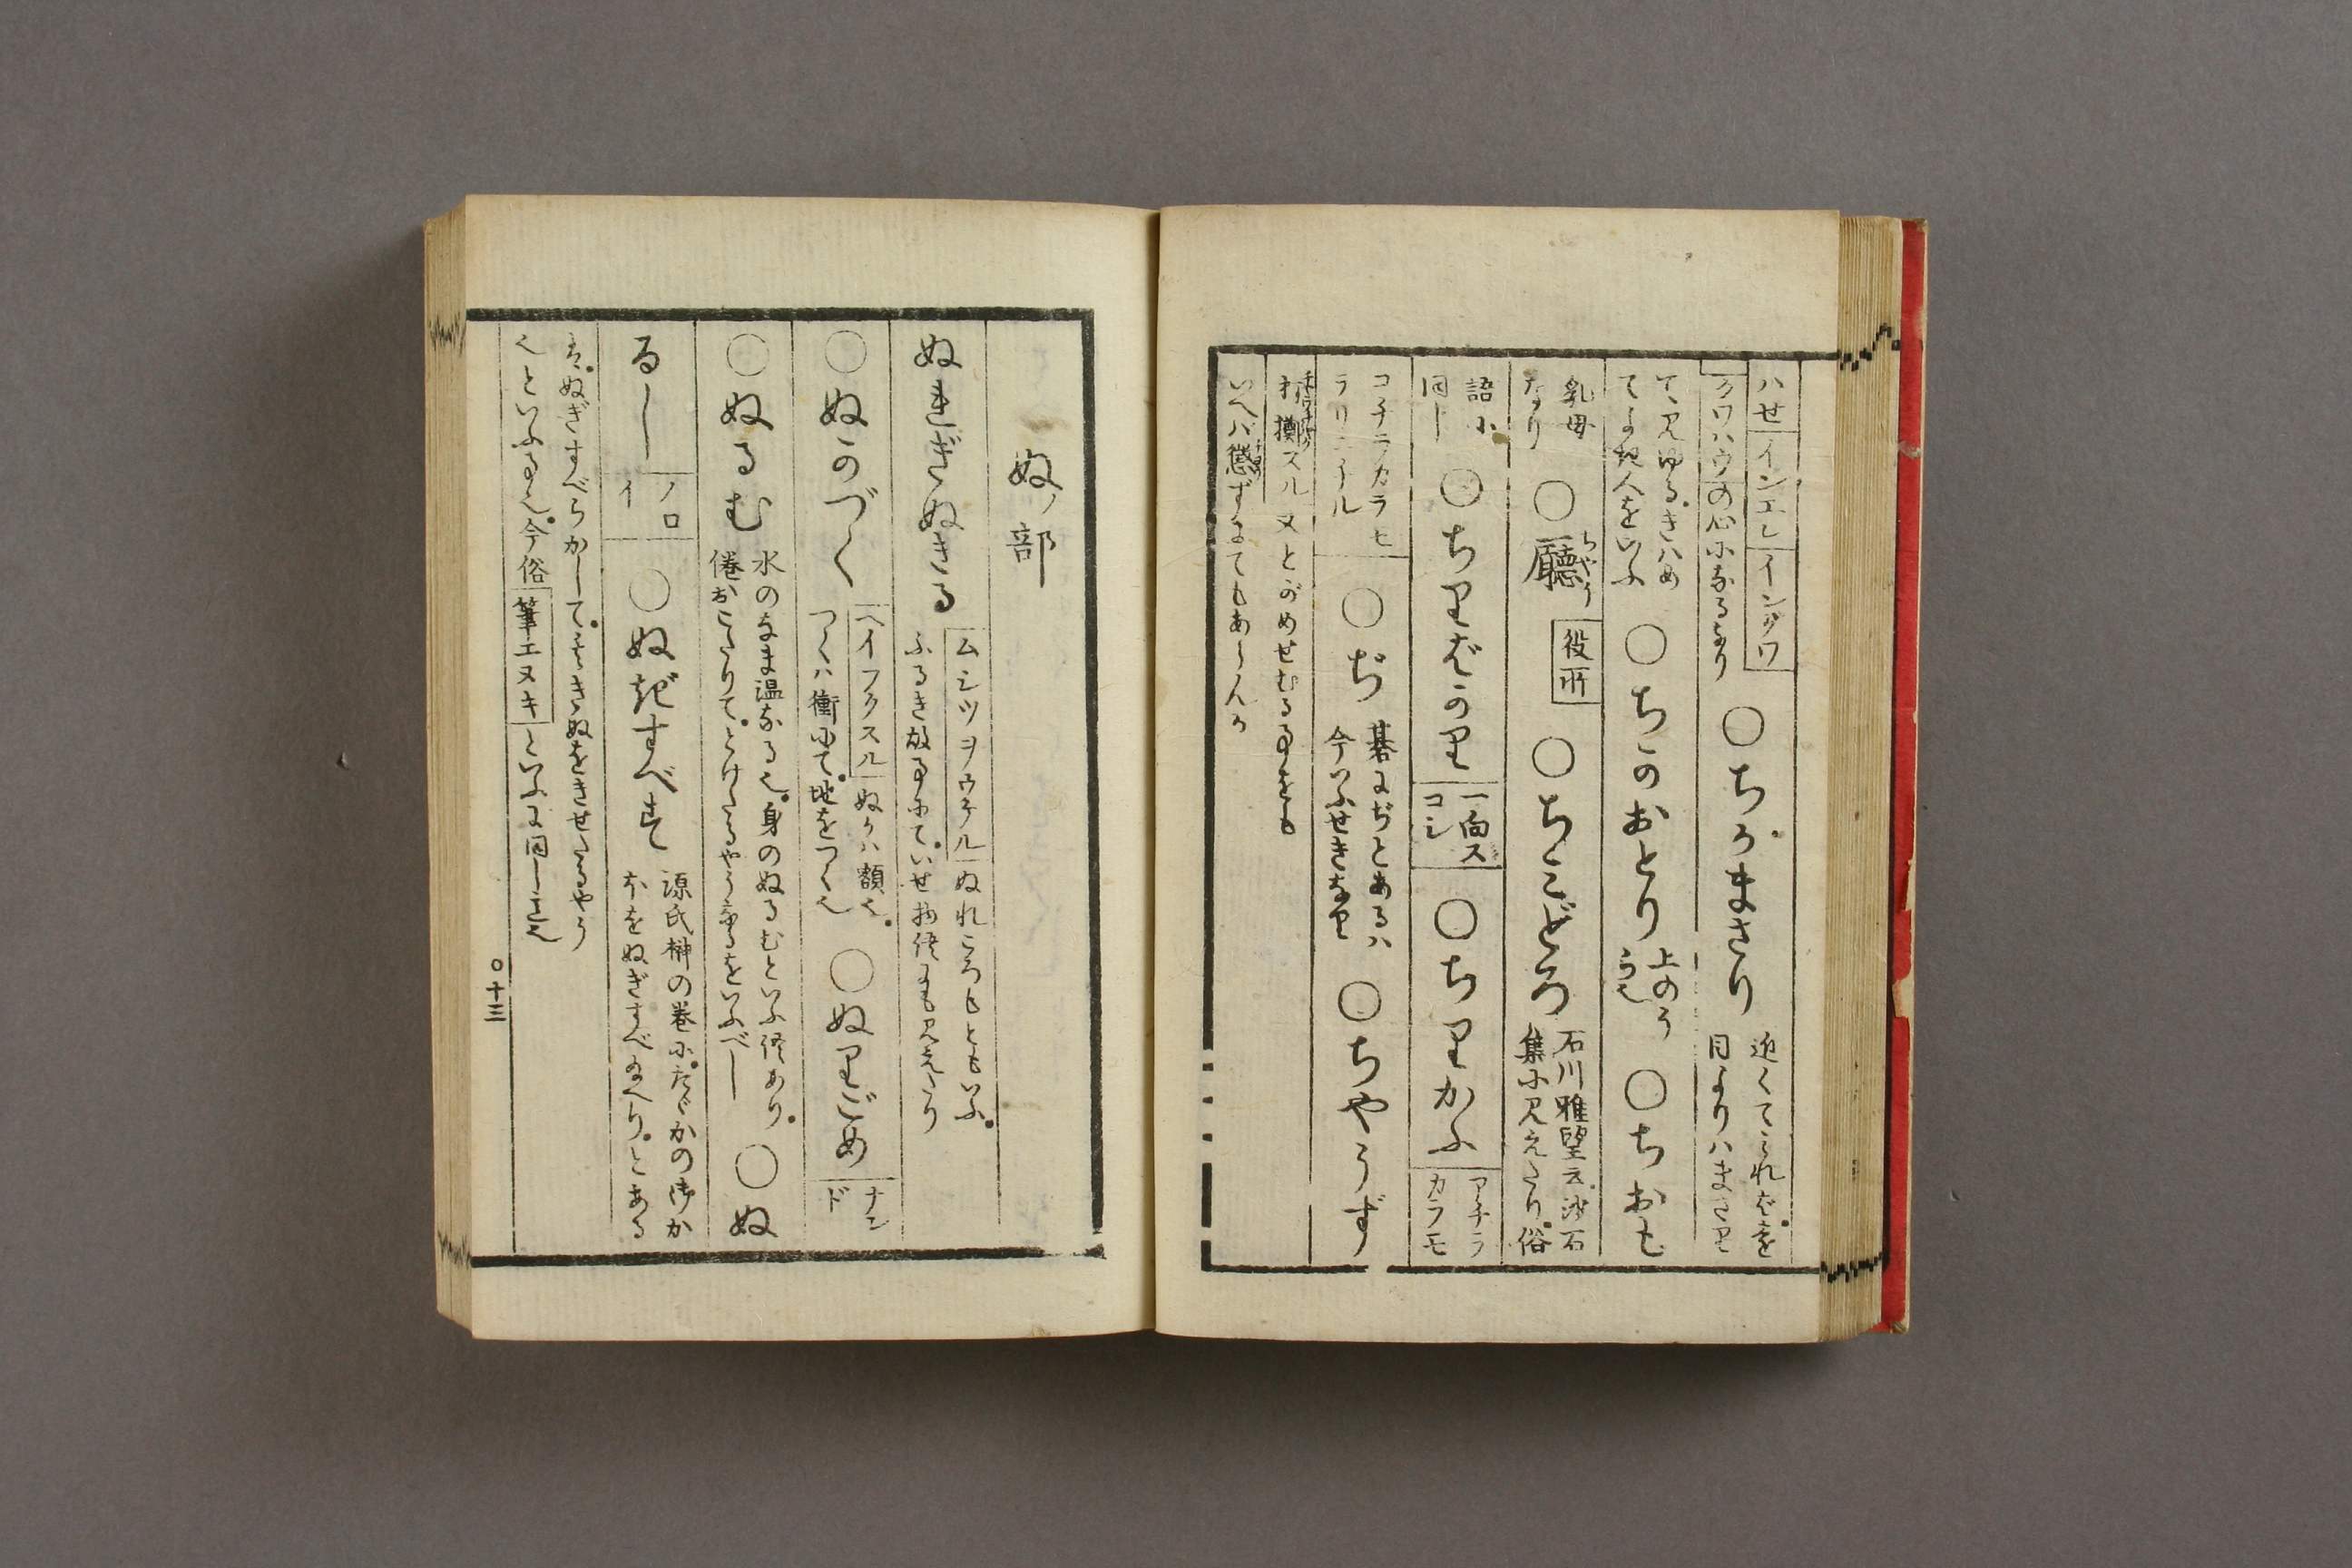 ハセ
インエン
イングワ
クワハウの心になるなり
○ちかまさり
近くてみればを
目よりハまさり
て見ゆる。きハめ
てよき人をいふ
○ちかおとり
上のう
らへ
○ちおも
乳母
なり
○廳
ちやう
役所
○ちみどろ
石川雅望云。沙石
集に見えたり。俗
語に
同し
○ちりばかり
一向ス
コシ
○ちりかふ
アチラ
カラモ
コチラカラモ
チラリニチル
○ぢ
碁にぢとあるハ
今いふせきなり
○ちやうず
打擲スル又とがめせむる事をも
いへバ懲ずるにてもあらんか
ぬノ部
ぬれぎぬきる
ムシツヲウケル
ぬれころもともいふ。
ふるき故事にて。いせ物語にも見えたり
○ぬかづく
ヘイフクスル
ぬかハ額也。
つくハ衝にて。地をつく也
○ぬりごめ
ナン
ド
○ぬるむ
水のなま温なる也。身のぬるむといふ語あり。
倦おこたりて。とけたるやうなるをいふべし
○ぬ
るし
ノロ
イ
○ぬぎすべす
源氏榊の巻に。たゞかの御か
ほをぬぎすべなへり。とある
は。ぬぎすべらかして。うすきぬをきせたるやう
也といふる也。今俗
筆エヌキ
といふに同し意也
○十三